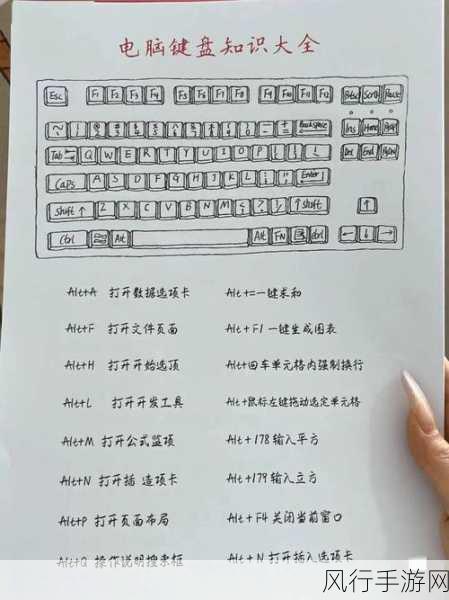 电脑键盘知识大全
Esc F1 F2 F3 F4 F5 F6 F7 F8 F9 F10 F11 F12 Scroll Pause
Backspace Ins Home
Tab Q W E R T Y U I O P Del End
Caps A S D F G H J K L Enter
Shift Z X C V B N M Shift ↑
Ctrl Alt Alt FN Ctrl ← ↓ →
Alt+A 打开数据选项卡 Alt+=一键求和
Alt+F 打开文件页面 Alt+F1 一键生成图表
Alt+H 打开开始选项 Alt+回车单元格内强制换行
Alt+L 打开开发工具 Alt+鼠标左键拖动选定单元格
Alt+M 打开公式监项 Alt+178输入平方
Alt+N 打开插 造项卡 Alt+179输入立方
Alt+P 打开页面布局 Alt+F4关闭当前窗口
Alt+Q 操作说明搜索框 Alt+N打开插入选项卡
风行手游网